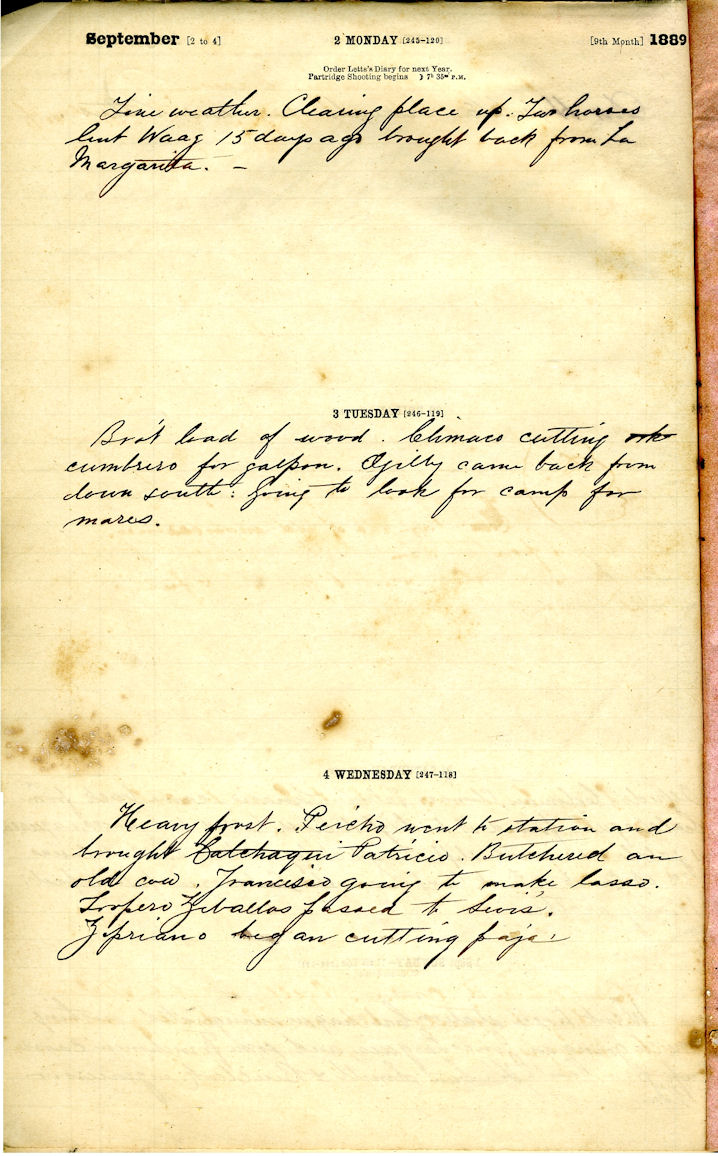 September [2 to 4] 2 MONDAY [245-120] [9th Month] 1889
Order Letts's Diary for next Year.
Partridge Shooting begins ☽ 7h 35m P.M.
Fine weather. Clearing place up. Two horses
lent Waag 15 days ago brought back from La
Margarita. —
3 TUESDAY [246-119]
Bro't load of wood. Climaco cutting
cumbrero for galpon. Ogilby came back from
down south: going to look for camp for
mares.
4 WEDNESDAY [247-118]
Heavy frost. Pericho went to station and
brought Calchaqui Patricio. Butchered an
old cow. Francisco going to make lasso.
Tropero Zeballos passed to
Zipriano began cutting paja: